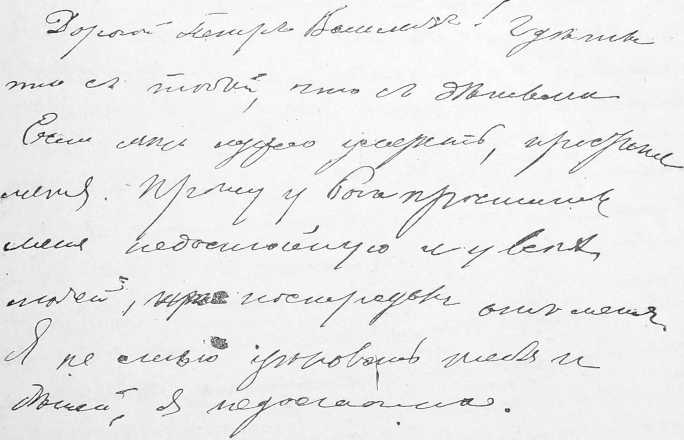 Дорогой Петръ Васильевичъ! Гдѣ ты
что съ тобой, что съ дѣтьми
Если мнѣ нужно умереть, прости
меня. Прошу у Бога простить
меня недостойную и у всѣхъ
людей, пострадав отъ меня.
Я не смѣю цѣловать тебя и
дѣтей, я недостойна.